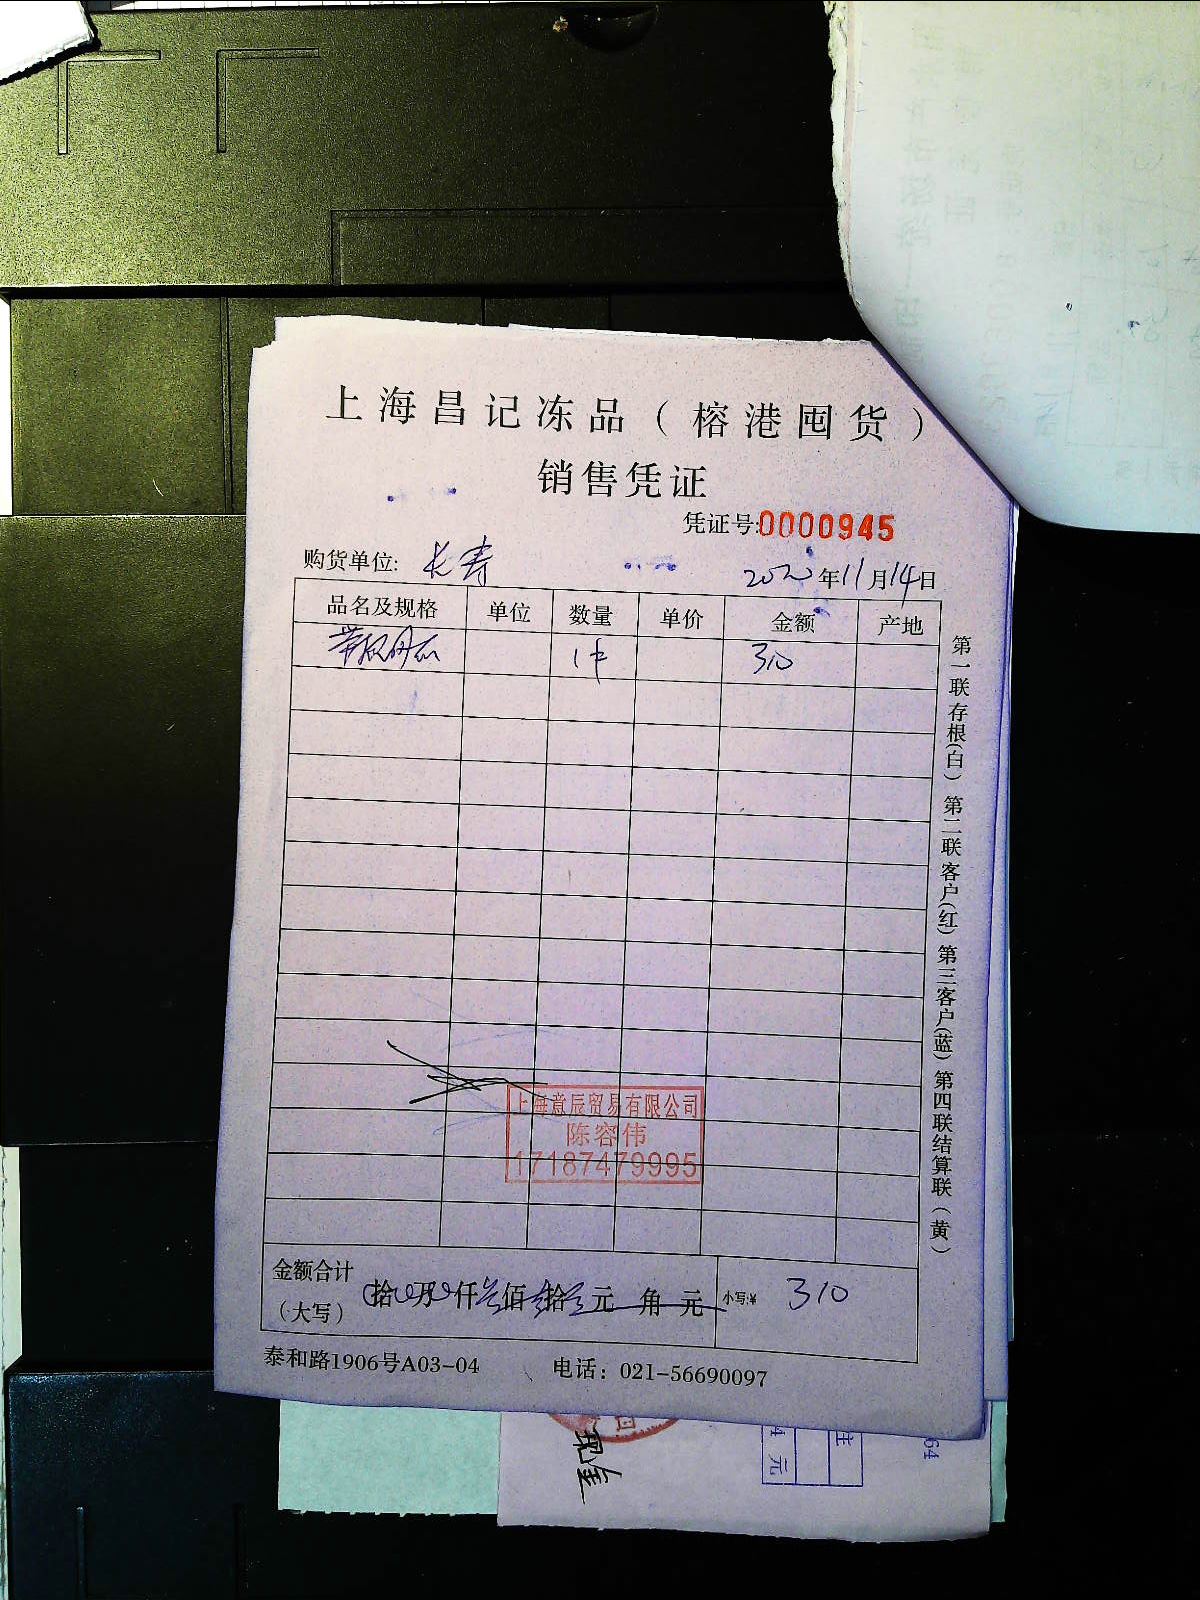 上海昌记冻品（榕港囤货）
销售凭证
凭证号:0000945
购货单位: 长寿
2020年11月14日
品名及规格 单位 数量 单价 金额 产地
1件 310
第一联存根(白) 第二联客户(红) 第三客户(蓝) 第四联结算联(黄)
上海意辰贸易有限公司
陈容伟
17187479995
金额合计
(大写)
拾 万 仟 佰 拾 元 角 元 小写:¥ 310
泰和路1906号A03-04 电话: 021-56690097
现金
4元
注
64